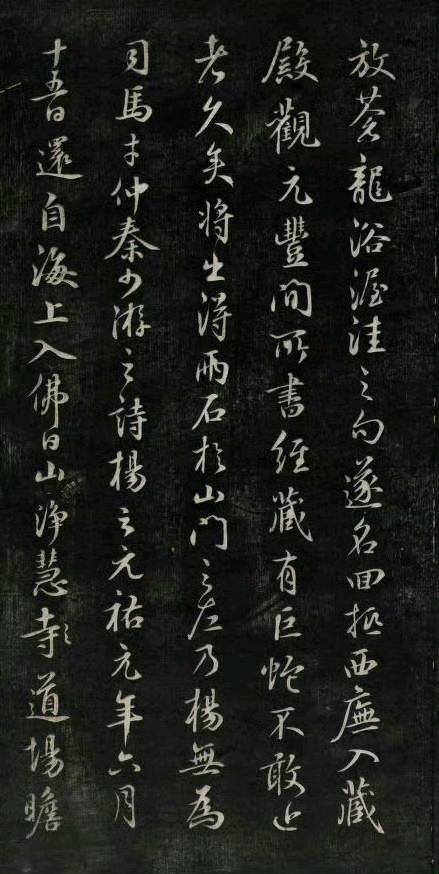 放蒼龍浴渥洼之句遂名回抵西廡入藏
殿觀元豐間所書經藏有巨蛇不敢近
者久矣將出得兩石於山門之左乃楊無為
司馬才仲秦少游之詩楊之元祐元年六月
十五日還自海上入佛日山淨慧寺道場瞻